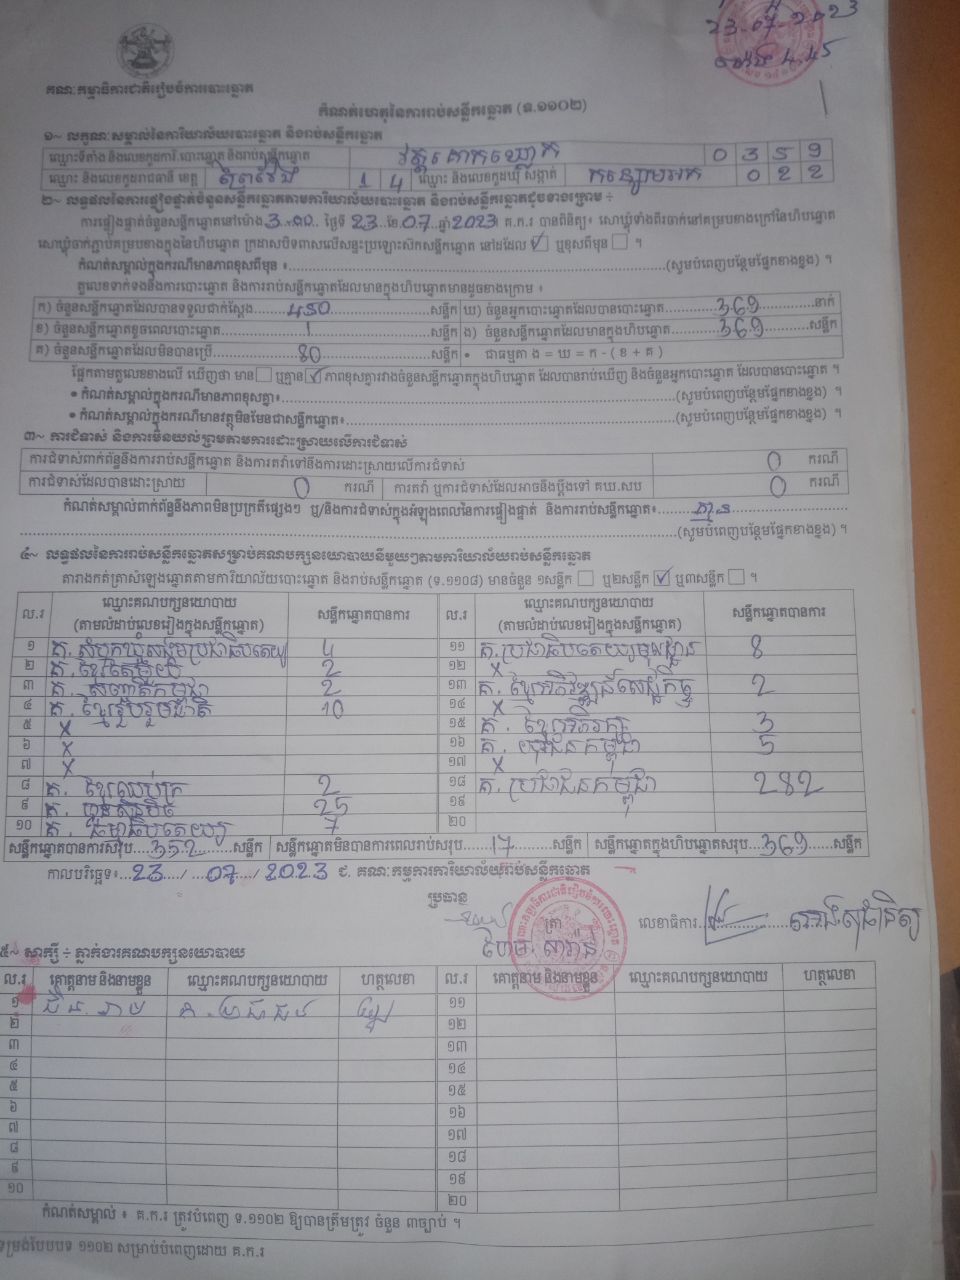 23-07-2023
ម៉ោង 4.45
គណៈកម្មាធិការជាតិរៀបចំការបោះឆ្នោត
កំណត់ហេតុនៃការរាប់សន្លឹកឆ្នោត (ទ.១១០២)
១~ លក្ខណៈសម្គាល់នៃការិយាល័យបោះឆ្នោត និងរាប់សន្លឹកឆ្នោត
ឈ្មោះទីតាំង និងលេខកូដការិ.បោះឆ្នោត និងរាប់សន្លឹកឆ្នោត 0 3 5 9
ឈ្មោះ និងលេខកូដរាជធានី ខេត្ត ព្រៃវែង 1 4 ឈ្មោះ និងលេខកូដឃុំ សង្កាត់ កន្សោមអក 0 2 2
២~ លទ្ធផលនៃការផ្ទៀងផ្ទាត់ចំនួនសន្លឹកឆ្នោតតាមការិយាល័យបោះឆ្នោត និងរាប់សន្លឹកឆ្នោតដូចខាងក្រោម ÷
ការផ្ទៀងផ្ទាត់ចំនួនសន្លឹកឆ្នោតនៅម៉ោង 3.00 ថ្ងៃទី 23 ខែ 07 ឆ្នាំ 2023 គ.ក.រ បានពិនិត្យ៖ សោឃ្លុំទាំងពីរចាក់នៅគម្របខាងក្រៅនៃហិបឆ្នោត
សោឃ្លុំចាក់ភ្ជាប់គម្របខាងក្នុងនៃហិបឆ្នោត ក្រដាសបិទពាសលើសន្ទះប្រឡោះស៊កសន្លឹកឆ្នោត នៅដដែល ☑ ឬខុសពីមុន ☐ ។
កំណត់សម្គាល់ក្នុងករណីមានភាពខុសពីមុន ៖ (សូមបំពេញបន្ថែមផ្នែកខាងខ្នង) ។
តួលេខទាក់ទងនឹងការបោះឆ្នោត និងការរាប់សន្លឹកឆ្នោតដែលមានក្នុងហិបឆ្នោតមានដូចខាងក្រោម ៖
ក) ចំនួនសន្លឹកឆ្នោតដែលបានទទួលជាក់ស្តែង 450 សន្លឹក ឃ) ចំនួនអ្នកបោះឆ្នោតដែលបានបោះឆ្នោត 369 នាក់
ខ) ចំនួនសន្លឹកឆ្នោតខូចពេលបោះឆ្នោត 1 សន្លឹក ង) ចំនួនសន្លឹកឆ្នោតដែលមានក្នុងហិបឆ្នោត 369 សន្លឹក
គ) ចំនួនសន្លឹកឆ្នោតដែលមិនបានប្រើ 80 សន្លឹក • ជាធម្មតា ង = ឃ = ក - ( ខ + គ )
ផ្អែកតាមតួលេខខាងលើ ឃើញថា មាន ☐ ឬគ្មាន ☑ ភាពខុសគ្នារវាងចំនួនសន្លឹកឆ្នោតក្នុងហិបឆ្នោត ដែលបានរាប់ឃើញ និងចំនួនអ្នកបោះឆ្នោត ដែលបានបោះឆ្នោត ។
• កំណត់សម្គាល់ក្នុងករណីមានភាពខុសគ្នា៖ (សូមបំពេញបន្ថែមផ្នែកខាងខ្នង) ។
• កំណត់សម្គាល់ក្នុងករណីមានវត្ថុមិនមែនជាសន្លឹកឆ្នោត៖ (សូមបំពេញបន្ថែមផ្នែកខាងខ្នង) ។
៣~ ការជំទាស់ និងការមិនយល់ព្រមតាមការដោះស្រាយលើការជំទាស់
ការជំទាស់ពាក់ព័ន្ធនឹងការរាប់សន្លឹកឆ្នោត និងការតវ៉ាទៅនឹងការដោះស្រាយលើការជំទាស់ 0 ករណី
ការជំទាស់ដែលបានដោះស្រាយ 0 ករណី ការតវ៉ា ឬការជំទាស់ដែលអាចនឹងប្តឹងទៅ គឃ.សប 0 ករណី
កំណត់សម្គាល់ពាក់ព័ន្ធនឹងភាពមិនប្រក្រតីផ្សេងៗ ឬ/និងការជំទាស់ក្នុងអំឡុងពេលនៃការផ្ទៀងផ្ទាត់ និងការរាប់សន្លឹកឆ្នោត៖ គ្មាន
(សូមបំពេញបន្ថែមផ្នែកខាងខ្នង) ។
៤~ លទ្ធផលនៃការរាប់សន្លឹកឆ្នោតសម្រាប់គណបក្សនយោបាយនីមួយៗតាមការិយាល័យរាប់សន្លឹកឆ្នោត
តារាងកត់ត្រាសំឡេងឆ្នោតតាមការិយាល័យបោះឆ្នោត និងរាប់សន្លឹកឆ្នោត (ទ.១១០៨) មានចំនួន ១សន្លឹក ☐ ឬ២សន្លឹក ☑ ឬ៣សន្លឹក ☐ ។
ល.រ ឈ្មោះគណបក្សនយោបាយ (តាមលំដាប់លេខរៀងក្នុងសន្លឹកឆ្នោត) សន្លឹកឆ្នោតបានការ ល.រ ឈ្មោះគណបក្សនយោបាយ (តាមលំដាប់លេខរៀងក្នុងសន្លឹកឆ្នោត) សន្លឹកឆ្នោតបានការ
១ គ. សំបុកឃ្មុំសង្គមប្រជាធិបតេយ្យ 4 ១១ គ. ប្រជាធិបតេយ្យមូលដ្ឋាន 8
២ គ. ខ្មែរតែមួយ 2 ១២ x
៣ គ. សញ្ជាតិកម្ពុជា 2 ១៣ គ. ខ្មែរអភិវឌ្ឍន៍សេដ្ឋកិច្ច 2
៤ គ. ខ្មែររួបរួមជាតិ 10 ១៤ x
៥ x ១៥ គ. ខ្មែរអភិរក្ស 3
៦ x ១៦ គ. យុវជនកម្ពុជា 5
៧ x ១៧ x
៨ គ. ខ្មែរឈប់ក្រ 2 ១៨ គ. ប្រជាជនកម្ពុជា 282
៩ គ. ហ្វ៊ុនស៊ិនប៉ិច 25 ១៩
១០ គ. ធម្មាធិបតេយ្យ 7 ២០
សន្លឹកឆ្នោតបានការសរុប 352 សន្លឹក សន្លឹកឆ្នោតមិនបានការពេលរាប់សរុប 17 សន្លឹក សន្លឹកឆ្នោតក្នុងហិបឆ្នោតសរុប 369 សន្លឹក
កាលបរិច្ឆេទ៖ 23 / 07 / 2023 ជ. គណៈកម្មការការិយាល័យរាប់សន្លឹកឆ្នោត
ប្រធាន
ត្រា លេខាធិការ
៥~ សាក្សី ÷ ភ្នាក់ងារគណបក្សនយោបាយ
ល.រ គោត្តនាម និងនាមខ្លួន ឈ្មោះគណបក្សនយោបាយ ហត្ថលេខា ល.រ គោត្តនាម និងនាមខ្លួន ឈ្មោះគណបក្សនយោបាយ ហត្ថលេខា
១ ១១
២ ១២
៣ ១៣
៤ ១៤
៥ ១៥
៦ ១៦
៧ ១៧
៨ ១៨
៩ ១៩
១០ ២០
កំណត់សម្គាល់ ៖ គ.ក.រ ត្រូវបំពេញ ទ.១១០២ ឱ្យបានត្រឹមត្រូវ ចំនួន ៣ច្បាប់ ។
ទម្រង់បែបបទ ១១០២ សម្រាប់បំពេញដោយ គ.ក.រ